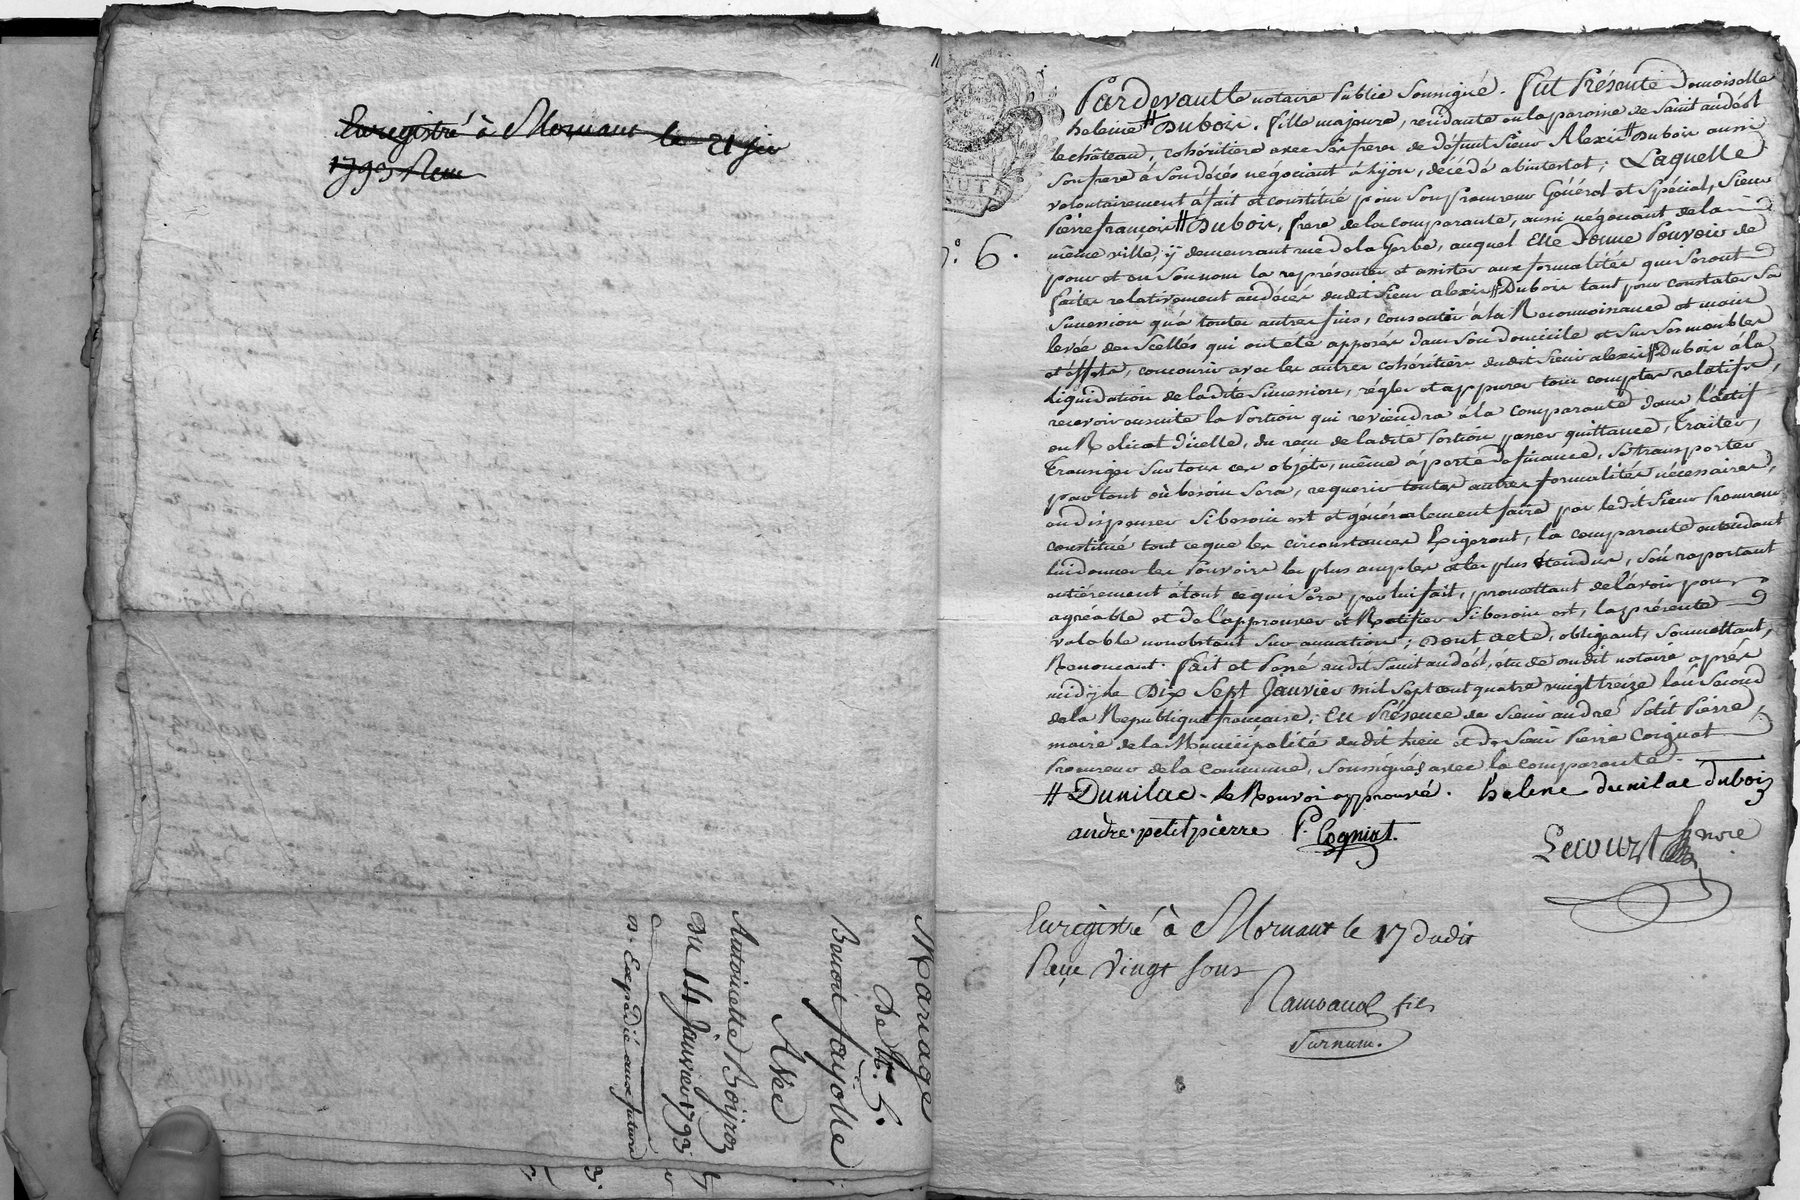 Enregistré à Mornant le 21 janv
1793 Recu
Mariage
De M. N.° 5.
Benoit fayolle
Avec
Antoinette Boiron
Du 14 Janvier 1793
D. Expédié aux futurs
N.° 6.
Pardevant le notaire Public Soussigné. Fut Présente Demoiselle
heleine # Dubois. fille majeure, residante en la paroisse de Saint andéol
le château, cohéritiere avec Ses freres de défunt Sieur Alexis # Dubois aussi
Son frere à Son décès négociant à lyon, décédé abintestat; Laquelle
volontairement a fait et constitué pour Son procureur Général et Spécial, Sieur
Pierre françois # Dubois, frere de la comparante, aussi négociant de la
même ville, ÿ demeurant rue de la Gerbe, auquel Elle Donne Pouvoir de
pour et en Son nom la représenter et assister aux formalités qui Seront
faites relativement au décès dudit Sieur alexis # Dubois tant pour constater Sa
Succession qu'à toutes autres fins, consentir à la Reconnoissance et main
levée des Scellés qui ont été apposés dans Son domicile et Sur Ses meubles
et effets, concourir avec les autres cohéritiers dudit Sieur alexis # Dubois à la
liquidation de ladite Succession, régler et appurer tous comptes relatifs,
recevoir ensuite la Portion qui reviendra à la comparante dans l'actif
ou Relicat d'icelle, du recu de ladite Portion passer quittance, Traiter,
Transiger Sur tous ces objets, même à perte de finance, Se transporter
partout où besoin Sera, requerir toutes autres formalités nécessaires,
en dispenser Si besoin est et généralement faire par ledit Sieur Procureur
constitué tout ce que les circonstances Exigeront, la comparante entendant
lui donner les Pouvoirs les plus amples et les plus étendus, S'en raportant
entiérement à tout ce qui Sera par lui fait, promettant de l'avoir pour
agréable et de l'approuver et Ratifier Si besoin est, la présente
valable nonobstant Sur annation; Dont acte, obligeant, Soumettant,
Renoncant. Fait et Passé audit Saint andéol, étude dudit notaire après
midÿ le Dix Sept Janvier mil Sept cent quatre vingt treize l'an Second
de la Republique francaise; En Présence de Sieur andré Petit Pierre,
maire de la Municipalité dudit lieu et de Sieur Pierre Coignat
Procureur de la Commune, Soussignés avec la comparante.
# Dunilac. le Renvoi approuvé. helene dunilac dubois
andre petitpierre P. Cogniat.
Lecourt nre
Enregistré à Mornant le 17 dudit
Reçu Vingt sous
Rambaud fils
Surnum.